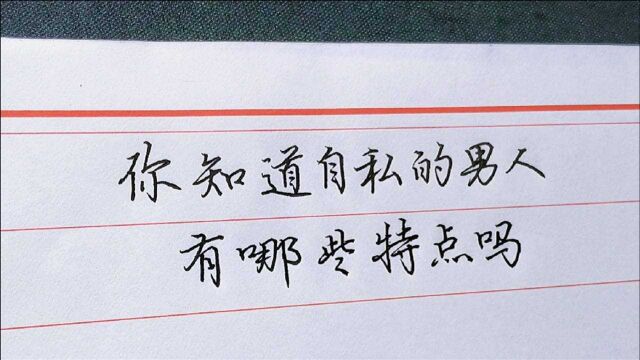 你知道自私的男人
有哪些特点吗